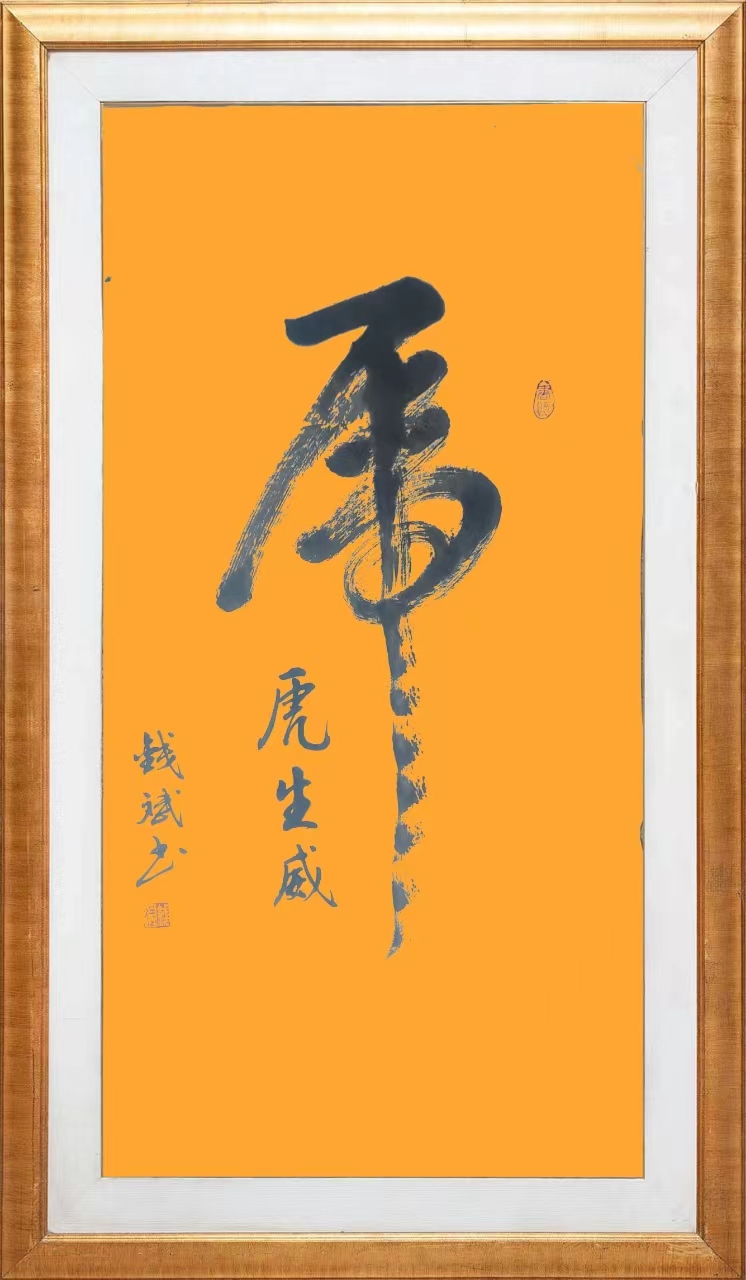 虎
虎生威
钱斌书